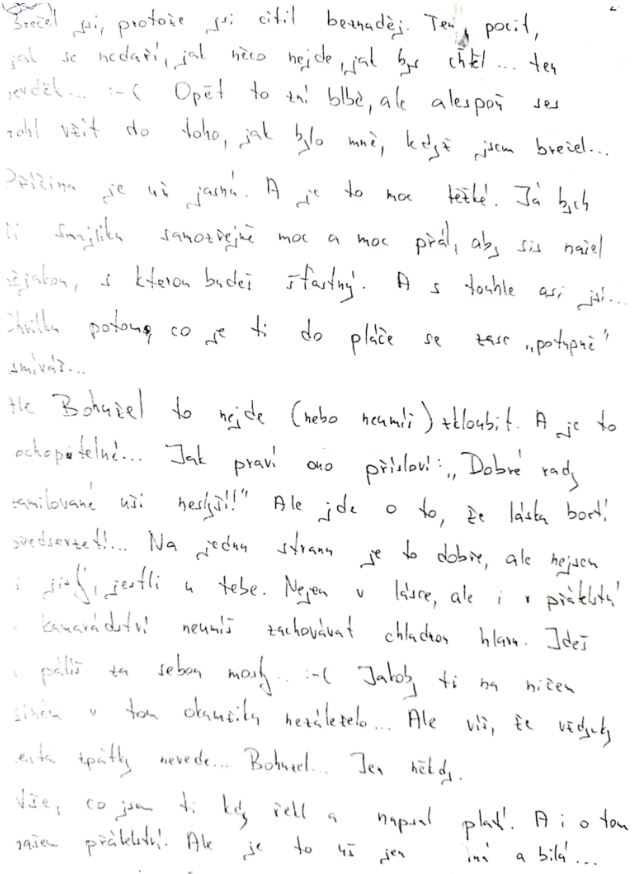 Brečel jsi, protože jsi cítil beznaděj. Ten pocit,
jak se nedaří, jak něco nejde, jak bys chtěl... ten
nevděk... :-( Opět to zní blbě, ale alespoň ses
mohl vžít do toho, jak bylo mně, když jsem brečel...
Příčina je už jasná. A je to moc těžké. Já bych
ti samozřejmě moc a moc přál, aby sis našel
nějakou, s kterou budeš šťastný. A s touhle asi jsi...
Chvilku potom, co je ti do pláče se zase „potupně"
smíváš...
Bohužel to nejde (nebo neumíš) skloubit. A je to
pochopitelné... Jak praví ono přísloví: „Dobré rady
zamilované uši neslyší!" Ale jde o to, že láska bortí
předsevzetí... Na jednu stranu je to dobře, ale nejsem
si jistý, jestli u tebe. Nejen v lásce, ale i v přátelství
a kamarádství neumíš zachovávat chladnou hlavu. Jdeš
a pálíš za sebou mosty... :-( Jakoby ti na ničem
jiném v tom okamžiku nezáleželo... Ale víš, že vždycky
cesta zpátky nevede... Bohužel... Jen někdy.
Vše, co jsem ti kdy řekl a napsal platí. A i o tom
našem přátelství. Ale je to už jen a bílá...